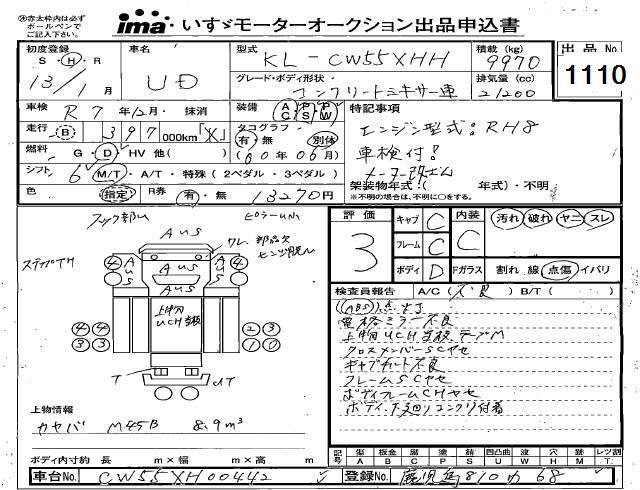 ※赤太枠内は必ず
ボールペンで
ご記入下さい。
ima・いすゞモーターオークション出品申込書
初度登録 車名 型式 積載 (kg) 出品 No.
S・H・R 13/1月 UD KL-CW55XHH 9970 1110
グレード・ボディ形状 排気量 (cc)
コンクリートミキサー車 21200
車検 R 7年12月・抹消 装備 AC PS PW 特記事項
走行 B 397 000km タコグラフ エンジン型式:RH8
有・無 別体 車検付!
燃料 G・D・HV 他( ) (00年06月)
シフト 6 M/T・A/T・特殊(2ペダル・3ペダル)
色 指定 R券 有・無 13270円 架装物年式:( 年式)・不明
※不明の場合は、不明に○をする。
フック部M
評価 3 キャブ C 内装 C 汚れ 破れ ヤニ スレ
フレーム C
ボディ D Fガラス 割れ 線 点傷 イバリ
AUS
ワレ、部品欠
検査員報告 A/C(不良)B/T( )
ABS
電格ミラー不良
クロスメンバーSCヤセ
キャブチルト不良
フレームSCヤセ
ボディフレームCHヤセ
ボディ・下廻りコンクリ付着
ステップTH
④ AUS AUS ④
AUS
④④ ②③
③③ ①⓪
T T UT
上物情報
カヤバ M45B 8.9m³
ボディ内寸約 長 m×幅 m×高 m
記号 傷 板金 腐 塗 錆 凹凸曲 波 穴 跡 レンズ割
A B C P S U W H M T
車台No. CW55XH00442 登録No. 鹿児島810か68